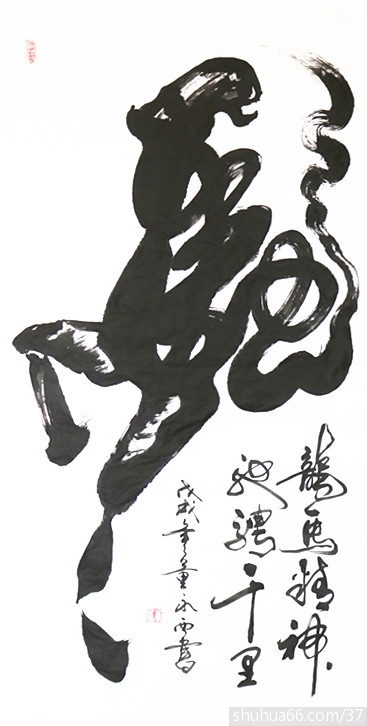 龍馬精神
馳騁千里
戊戌年永西書
shuhua66.com/37